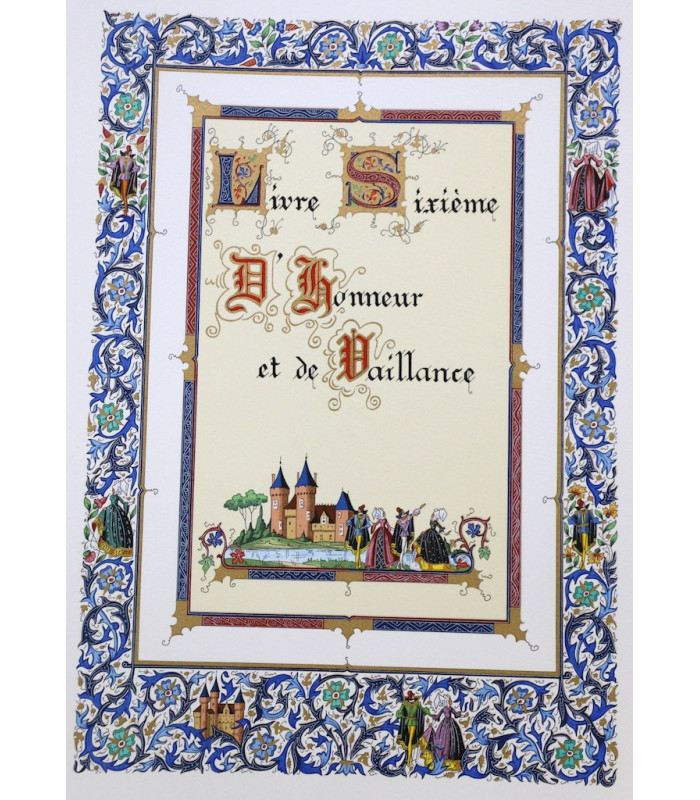 Livre Sixième
D'Honneur
et de Vaillance